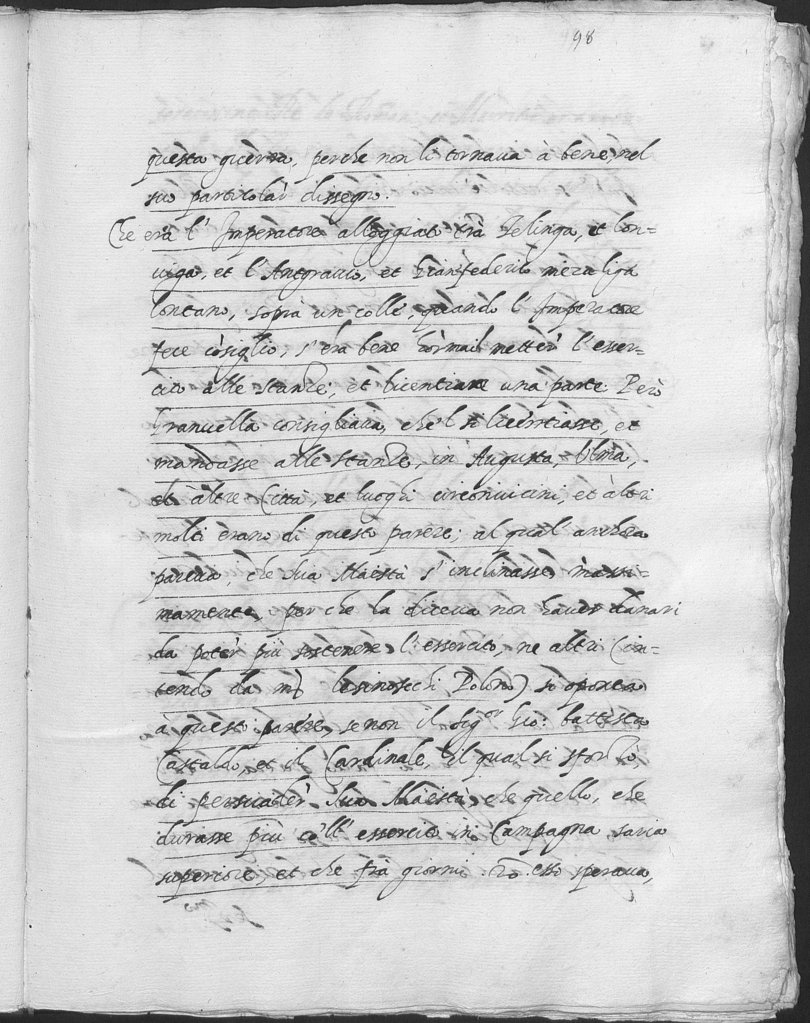 98
questa guerra, perche non li tornaua à bene, nel
suo particolar dissegno.
Che era l' Imperatore alloggiato trà Delinga, et Lon-
uiga, et l' Antgrauio, et Gianfederico meza liga
lontano, soprà un colle, quando l' Imperatore
fece cósiglio, s' era bene hormai metter l' esser-
cito alle stanze, et licentiare una parte. Però
Granuella consigliaua, che 'l si licentiasse, et
mandasse alle stanze, in Augusta, Vlma,
et altre Città, et luoghi circonuicini, et altri
molti erano di questo parere; al qual' anchora
pareua, che Sua Maestà s' inclinasse, massi-
mamente, per che la diceua non hauer danari
da poter più sostenere l' essercito, ne altri (in-
tendo da mó Polono) si oponeua
à questo parere, se non il sigor Gio: battista
Castaldo, et il Cardinale, il qual si sforzò
di persuader Sua Maestà, che quello, che
durasse più có l' essercito in Campagna saria
superiore, et che frà giorni .20. esso speraua,